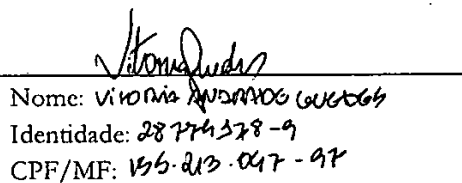 Nome: VITORIA ANDRADE GUEDES
Identidade: 28774378-9
CPF/MF: 155.213.047-97